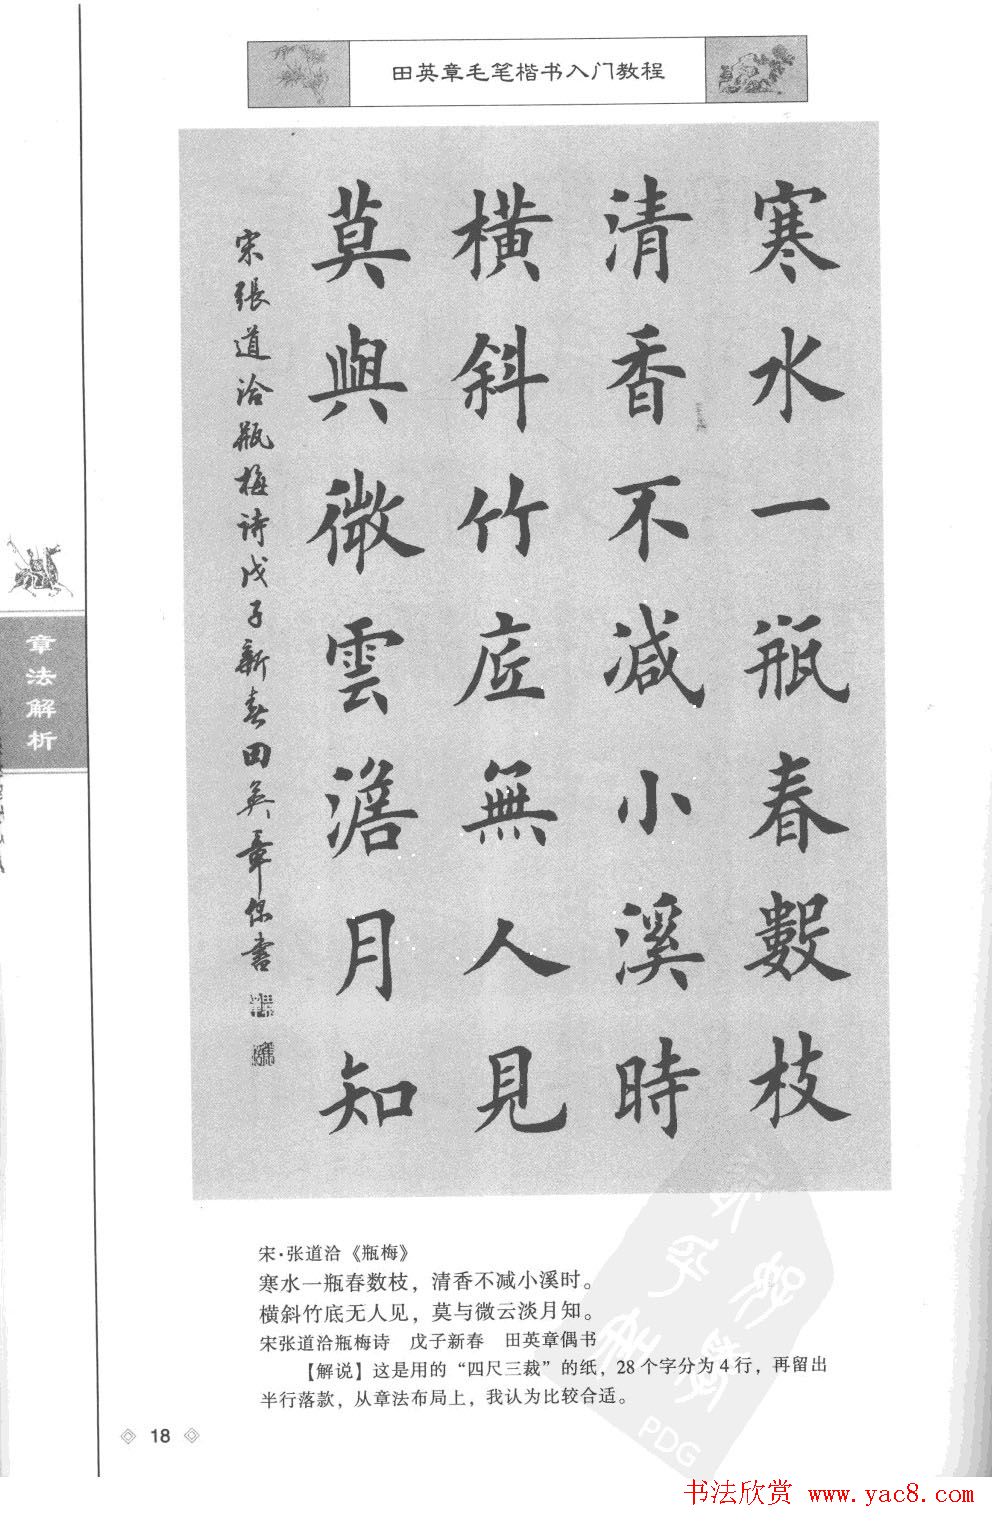 田英章毛笔楷书入门教程
寒水一瓶春數枝
清香不減小溪時
橫斜竹底無人見
莫與微雲澹月知
宋張道洽瓶梅詩戊子新春田英章偶書
章法解析
宋·张道洽《瓶梅》
寒水一瓶春数枝，清香不减小溪时。
横斜竹底无人见，莫与微云淡月知。
宋张道洽瓶梅诗　戊子新春　田英章偶书
【解说】这是用的“四尺三裁”的纸，28个字分为4行，再留出
半行落款，从章法布局上，我认为比较合适。
18
PDG
书法欣赏 www.yac8.com